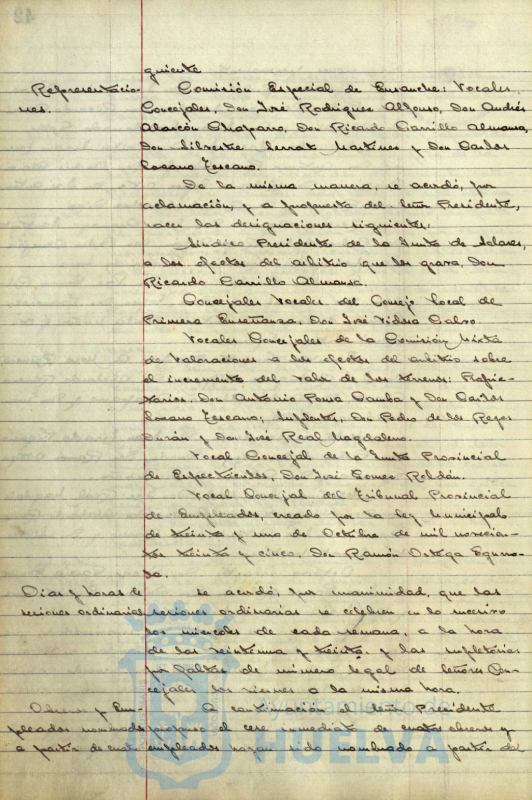 guiente
Representacio- Comisión Especial de Ensanche: Vocales
nes. Concejales, Don José Rodriguez Alfonso, Don Andrés
Alarcón Chaparro, Don Ricardo Carrillo Almansa,
Don Silvestre Serrat Martínez y Don Carlos
Lozano Lescano.
De la misma manera, se acordó, por
aclamación, y a propuesta del Señor Presidente,
hacer las designaciones siguientes:
Síndico Presidente de la Junta de Solares,
a los efectos del arbitrio que les grava, Don
Ricardo Carrillo Almansa.
Concejales Vocales del Consejo Local de
Primera Enseñanza, Don José Calvo
Vocales Concejales de la Comisión Mixta
de Valoraciones a los efectos del arbitrio sobre
el incremento del valor de los terrenos: Propie-
tarios, Don Antonio Poma y Don Carlos
Lozano Lescano; Suplentes, Don Pedro de los Reyes
Durán y Don José Real Magdaleno.
Vocal Concejal de la Junta Provincial
de Espectáculos, Don José Gomez Roldán.
Vocal Concejal del Tribunal Provincial
de Empleados, creado por la Ley Municipal
de treinta y uno de Octubre de mil novecien-
tos treinta y cinco, Don Ramón Ortega
Dias y horas de Se acordó, por unanimidad, que las
sesiones ordinarias sesiones ordinarias se celebren en lo sucesivo
los miercoles de cada semana, a la hora
de las veintiuna y treinta, y las supletorias
por faltas de número legal de Señores Con-
cejales los viernes a la misma hora.
Obreros y Em- A continuación el Señor Presidente
pleados nombrados propuso el cese inmediato de cuantos obreros y
a partir de empleados hayan sido nombrado a partir del
Ayuntamiento de
HUELVA